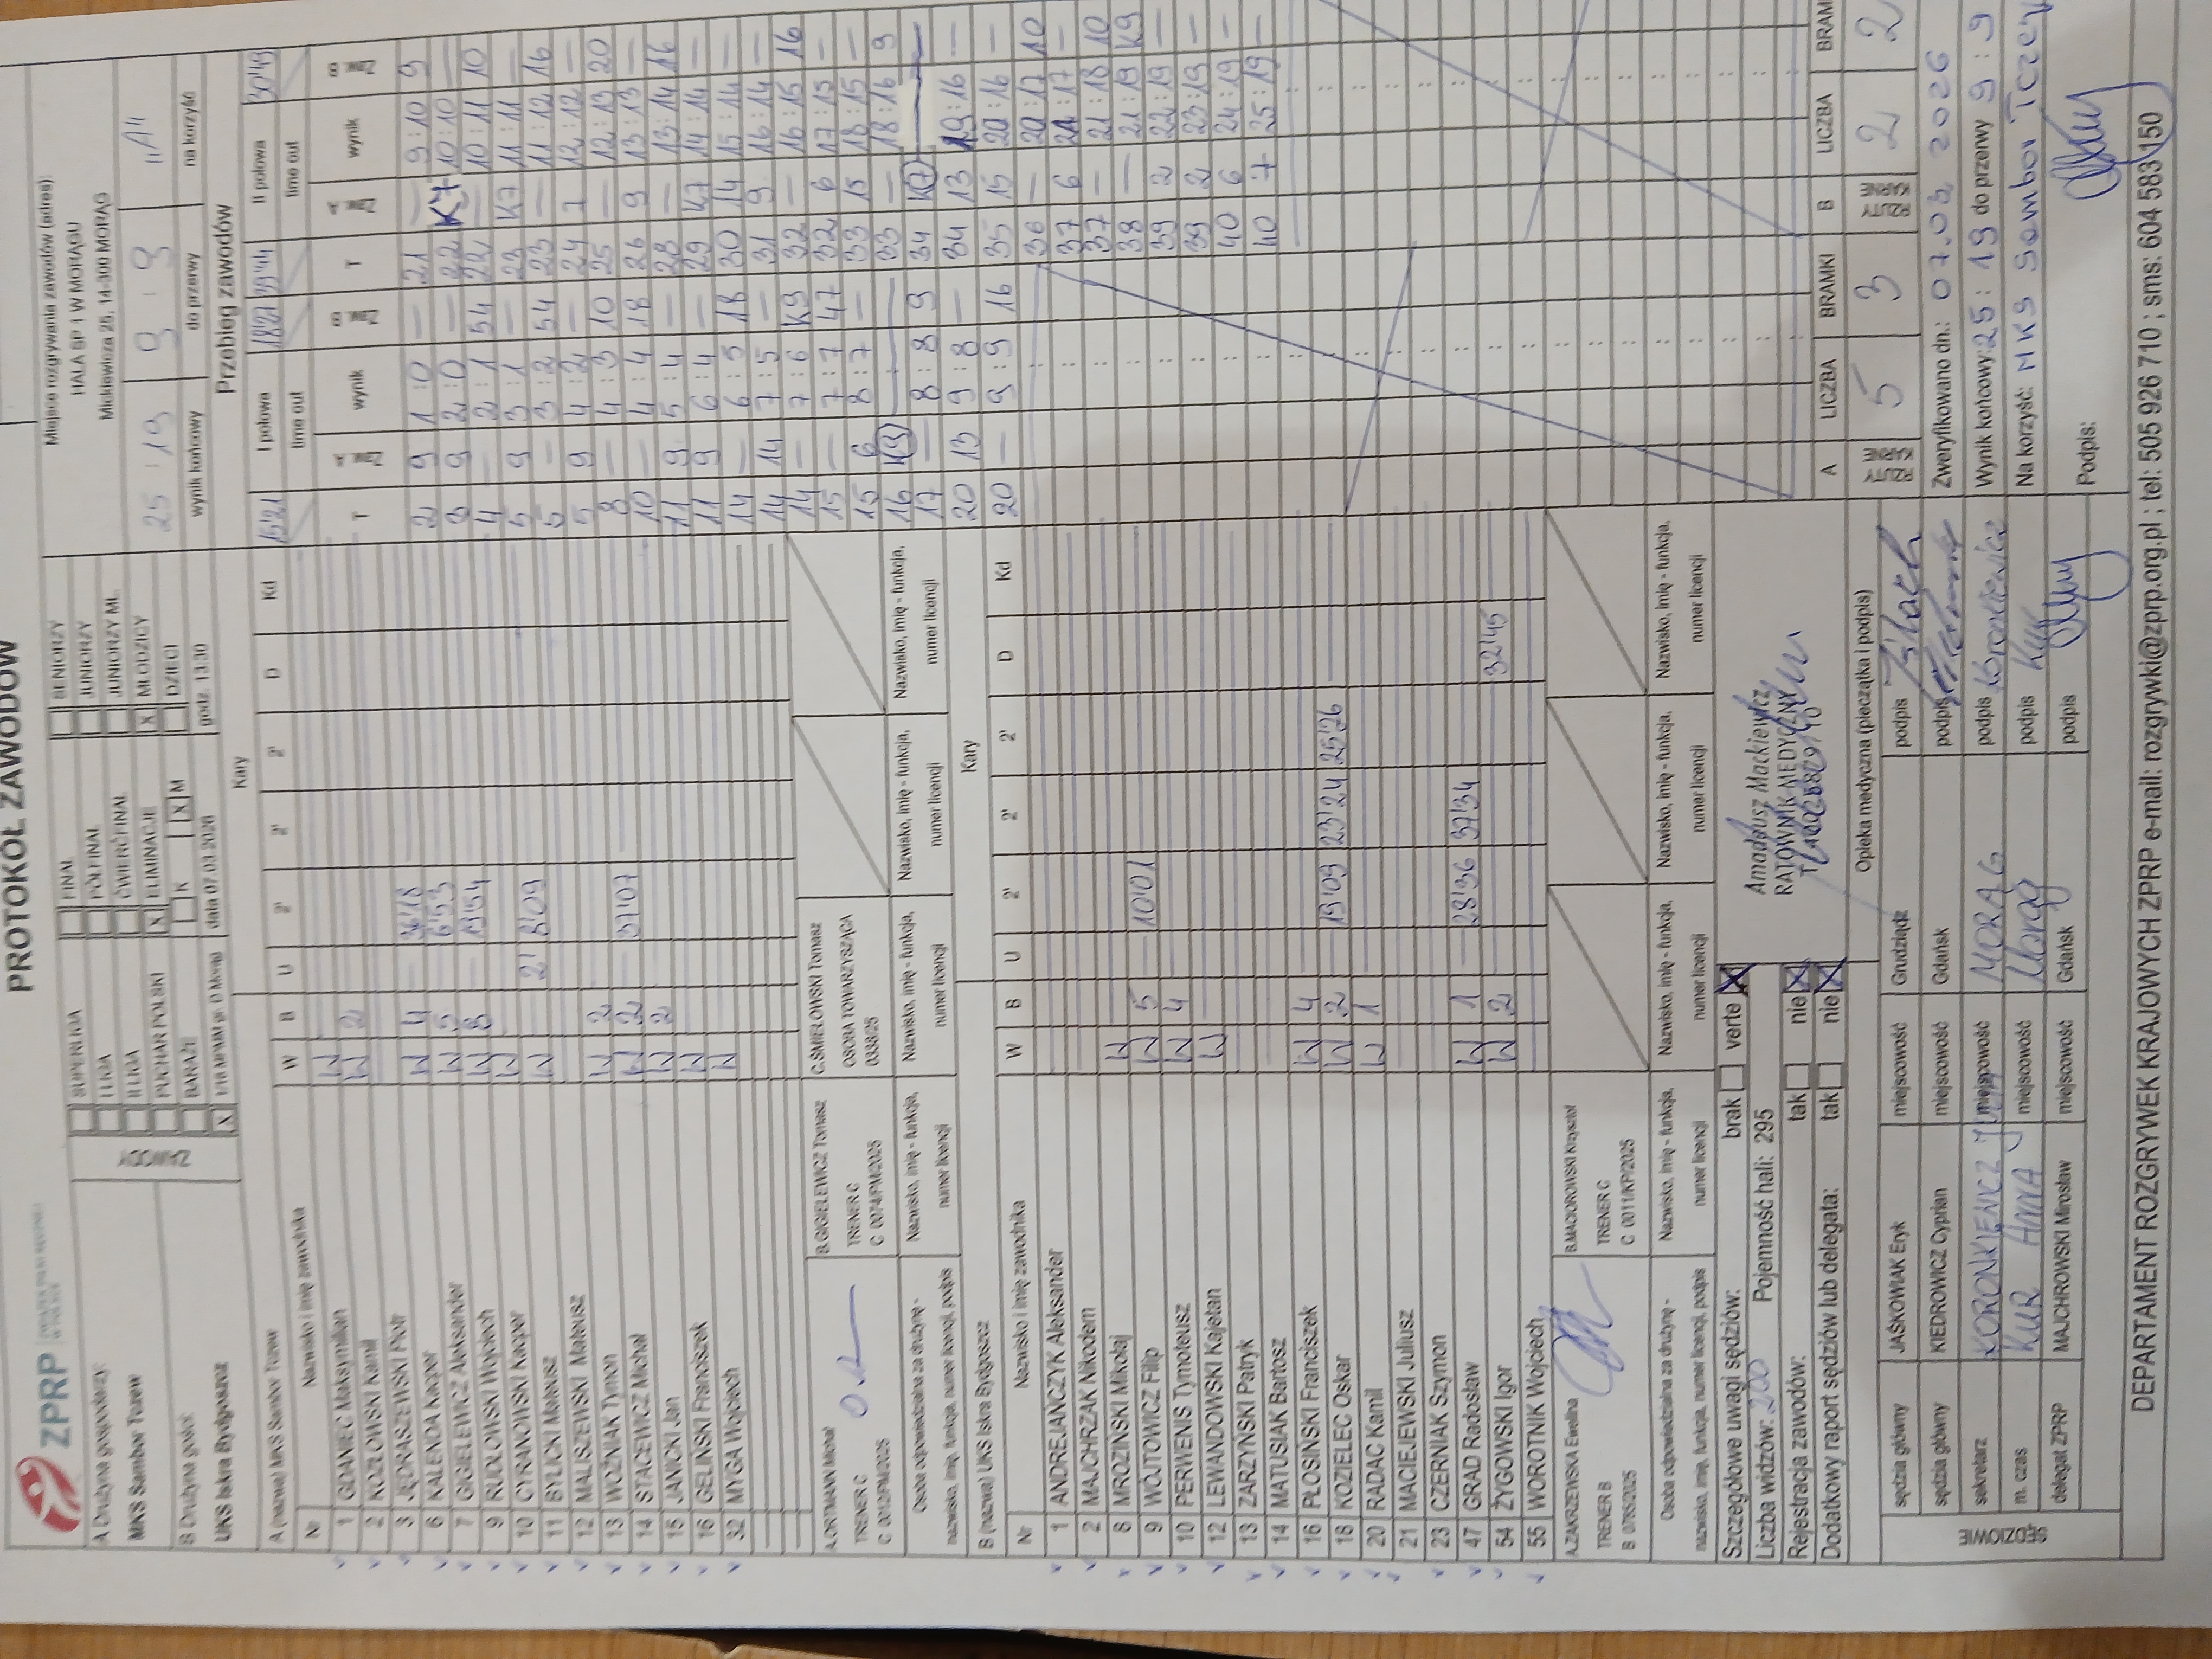 PROTOKÓŁ ZAWODÓW
ZPRP
A Drużyna gospodarzy:
MKS Sambor Tczew
B Drużyna gości:
UKS Iskra Bydgoszcz
ZAWODY
SUPERLIGA
I LIGA
II LIGA
PUCHAR POLSKI
BARAŻE
X 1/16 MPMłM gr. D Morąg
FINAŁ
PÓŁFINAŁ
ĆWIERĆFINAŁ
X ELIMINACJE
K X M
data 07.03.2026
SENIORZY
JUNIORZY
JUNIORZY MŁ.
X MŁODZICY
DZIECI
godz. 13:30
Miejsce rozgrywania zawodów (adres):
HALA SP 1 W MORĄGU
Mickiewicza 25, 14-300 MORĄG
25 : 19 9 : 9 "A"
wynik końcowy do przerwy na korzyść
A (nazwa) MKS Sambor Tczew
Kary
Nr Nazwisko i imię zawodnika W B U 2' 2' 2' D Kd
1 GDANIEC Maksymilian W
2 KOZŁOWSKI Kamil W 2
3 JĘDRASZEWSKI Piotr
6 KALENDA Kacper W 4 36'18
7 GIGIELEWICZ Aleksander W 6'53
9 RUDŁOWSKI Wojciech W 8 19'54
10 CYRANOWSKI Kacper W
11 BYLICKI Mateusz W 2' 8'09
12 MALISZEWSKI Mateusz
13 WOŹNIAK Tymon W 2
14 STACEWICZ Michał W 2 37'07
15 JANICKI Jan W 2
16 GELIŃSKI Franciszek W
32 MYGA Wojciech W
A.ORTMANN Michał
TRENER C
C 0012/PM/2025
B.GIGIELEWICZ Tomasz
TRENER C
C 0074/PM/2025
C.ŚMIEŁOWSKI Tomasz
OSOBA TOWARZYSZĄCA
0338/25
Osoba odpowiedzialna za drużynę - nazwisko, imię, funkcja, numer licencji, podpis
Nazwisko, imię - funkcja, numer licencji
Nazwisko, imię - funkcja, numer licencji
Nazwisko, imię - funkcja, numer licencji
Nazwisko, imię - funkcja, numer licencji
B (nazwa) UKS Iskra Bydgoszcz
Kary
Nr Nazwisko i imię zawodnika W B U 2' 2' 2' D Kd
1 ANDREJAŃCZYK Aleksander
2 MAJCHRZAK Nikodem
8 MROZIŃSKI Mikołaj W
9 WÓJTOWICZ Filip W 5 10'01
10 PERWENIS Tymoteusz W 4
12 LEWANDOWSKI Kajetan W
13 ZARZYŃSKI Patryk
14 MATUSIAK Bartosz
16 PŁOSIŃSKI Franciszek W 4 19'09 23'24 25'26
18 KOZIELEC Oskar W 2
20 RADAC Kamil W 1
21 MACIEJEWSKI Juliusz
23 CZERNIAK Szymon
47 GRAD Radosław W 1 28'36 37'34
54 ŻYGOWSKI Igor W 2 32'45
55 WOROTNIK Wojciech
A.ZAKRZEWSKA Ewelina
TRENER B
B 0785/2025
B.MACIOROWSKI Krzysztof
TRENER C
C 0011/KP/2025
Osoba odpowiedzialna za drużynę - nazwisko, imię, funkcja, numer licencji, podpis
Nazwisko, imię - funkcja, numer licencji
Nazwisko, imię - funkcja, numer licencji
Nazwisko, imię - funkcja, numer licencji
Nazwisko, imię - funkcja, numer licencji
Szczegółowe uwagi sędziów: brak verte X
Liczba widzów: 200 Pojemność hali: 295
Rejestracja zawodów: tak nie X
Dodatkowy raport sędziów lub delegata: tak nie X
Amadeusz Mackiewicz
RATOWNIK MEDYCZNY
Opieka medyczna (pieczątka i podpis)
SĘDZIOWIE
sędzia główny JAŚKOWIAK Eryk miejscowość Grudziądz podpis
sędzia główny KIEDROWICZ Cyprian miejscowość Gdańsk podpis
sekretarz KORONKIEWICZ miejscowość MORĄG podpis Koronkiewicz
m. czas KUR ANNA miejscowość Morąg podpis Kur
delegat ZPRP MAJCHROWSKI Mirosław miejscowość Gdańsk podpis
Przebieg zawodów
I połowa time out 15'21 18'21
T wynik
2 9 1 : 0 —
3 9 2 : 0 —
4 — 2 : 1 54
5 9 3 : 1 —
5 — 3 : 2 54
5 9 4 : 2 —
8 — 4 : 3 10
10 — 4 : 4 18
11 9 5 : 4 —
11 9 6 : 4 —
14 — 6 : 5 18
14 14 7 : 5 —
14 — 7 : 6 K9
15 — 7 : 7 47
15 6 8 : 7 —
16 K9 —
17 — 8 : 8 9
20 13 9 : 8 —
20 — 9 : 9 16
II połowa time out 33'44 30'49
T wynik
21 — 9 : 10 9
22 K7 10 : 10 —
22 — 10 : 11 10
23 K7 11 : 11 —
23 — 11 : 12 16
24 7 12 : 12 —
25 — 12 : 13 20
26 9 13 : 13 —
28 — 13 : 14 16
29 K7 14 : 14 —
30 14 15 : 14 —
31 9 16 : 14 —
32 — 16 : 15 16
32 6 17 : 15 —
33 15 18 : 15 —
33 — 18 : 16 9
34 K7 —
34 13 19 : 16 —
35 15 20 : 16 —
36 — 20 : 17 10
37 6 21 : 17 —
37 — 21 : 18 10
38 — 21 : 19 K9
39 2 22 : 19 —
39 2 23 : 19 —
40 6 24 : 19 —
40 7 25 : 19 —
A RZUTY KARNE LICZBA 5 BRAMKI 3
B RZUTY KARNE LICZBA 2 2
Zweryfikowano dn.: 07.03.2026
Wynik końcowy: 25 : 19 do przerwy 9 : 9
Na korzyść: MKS Sambor Tczew
Podpis:
DEPARTAMENT ROZGRYWEK KRAJOWYCH ZPRP e-mail: rozgrywki@zprp.org.pl ; tel: 505 926 710 ; sms: 604 583 150